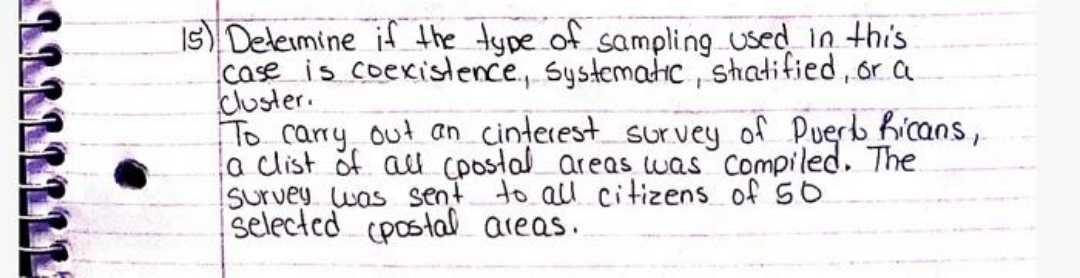 15) Determine if the type of sampling used in this
case is coexistence, systematic, stratified, or a
cluster.
To carry out an cinterest survey of Puerto Ricans,
a clist of all cpostal areas was compiled. The
survey was sent to all citizens of 50
selected cpostal areas.